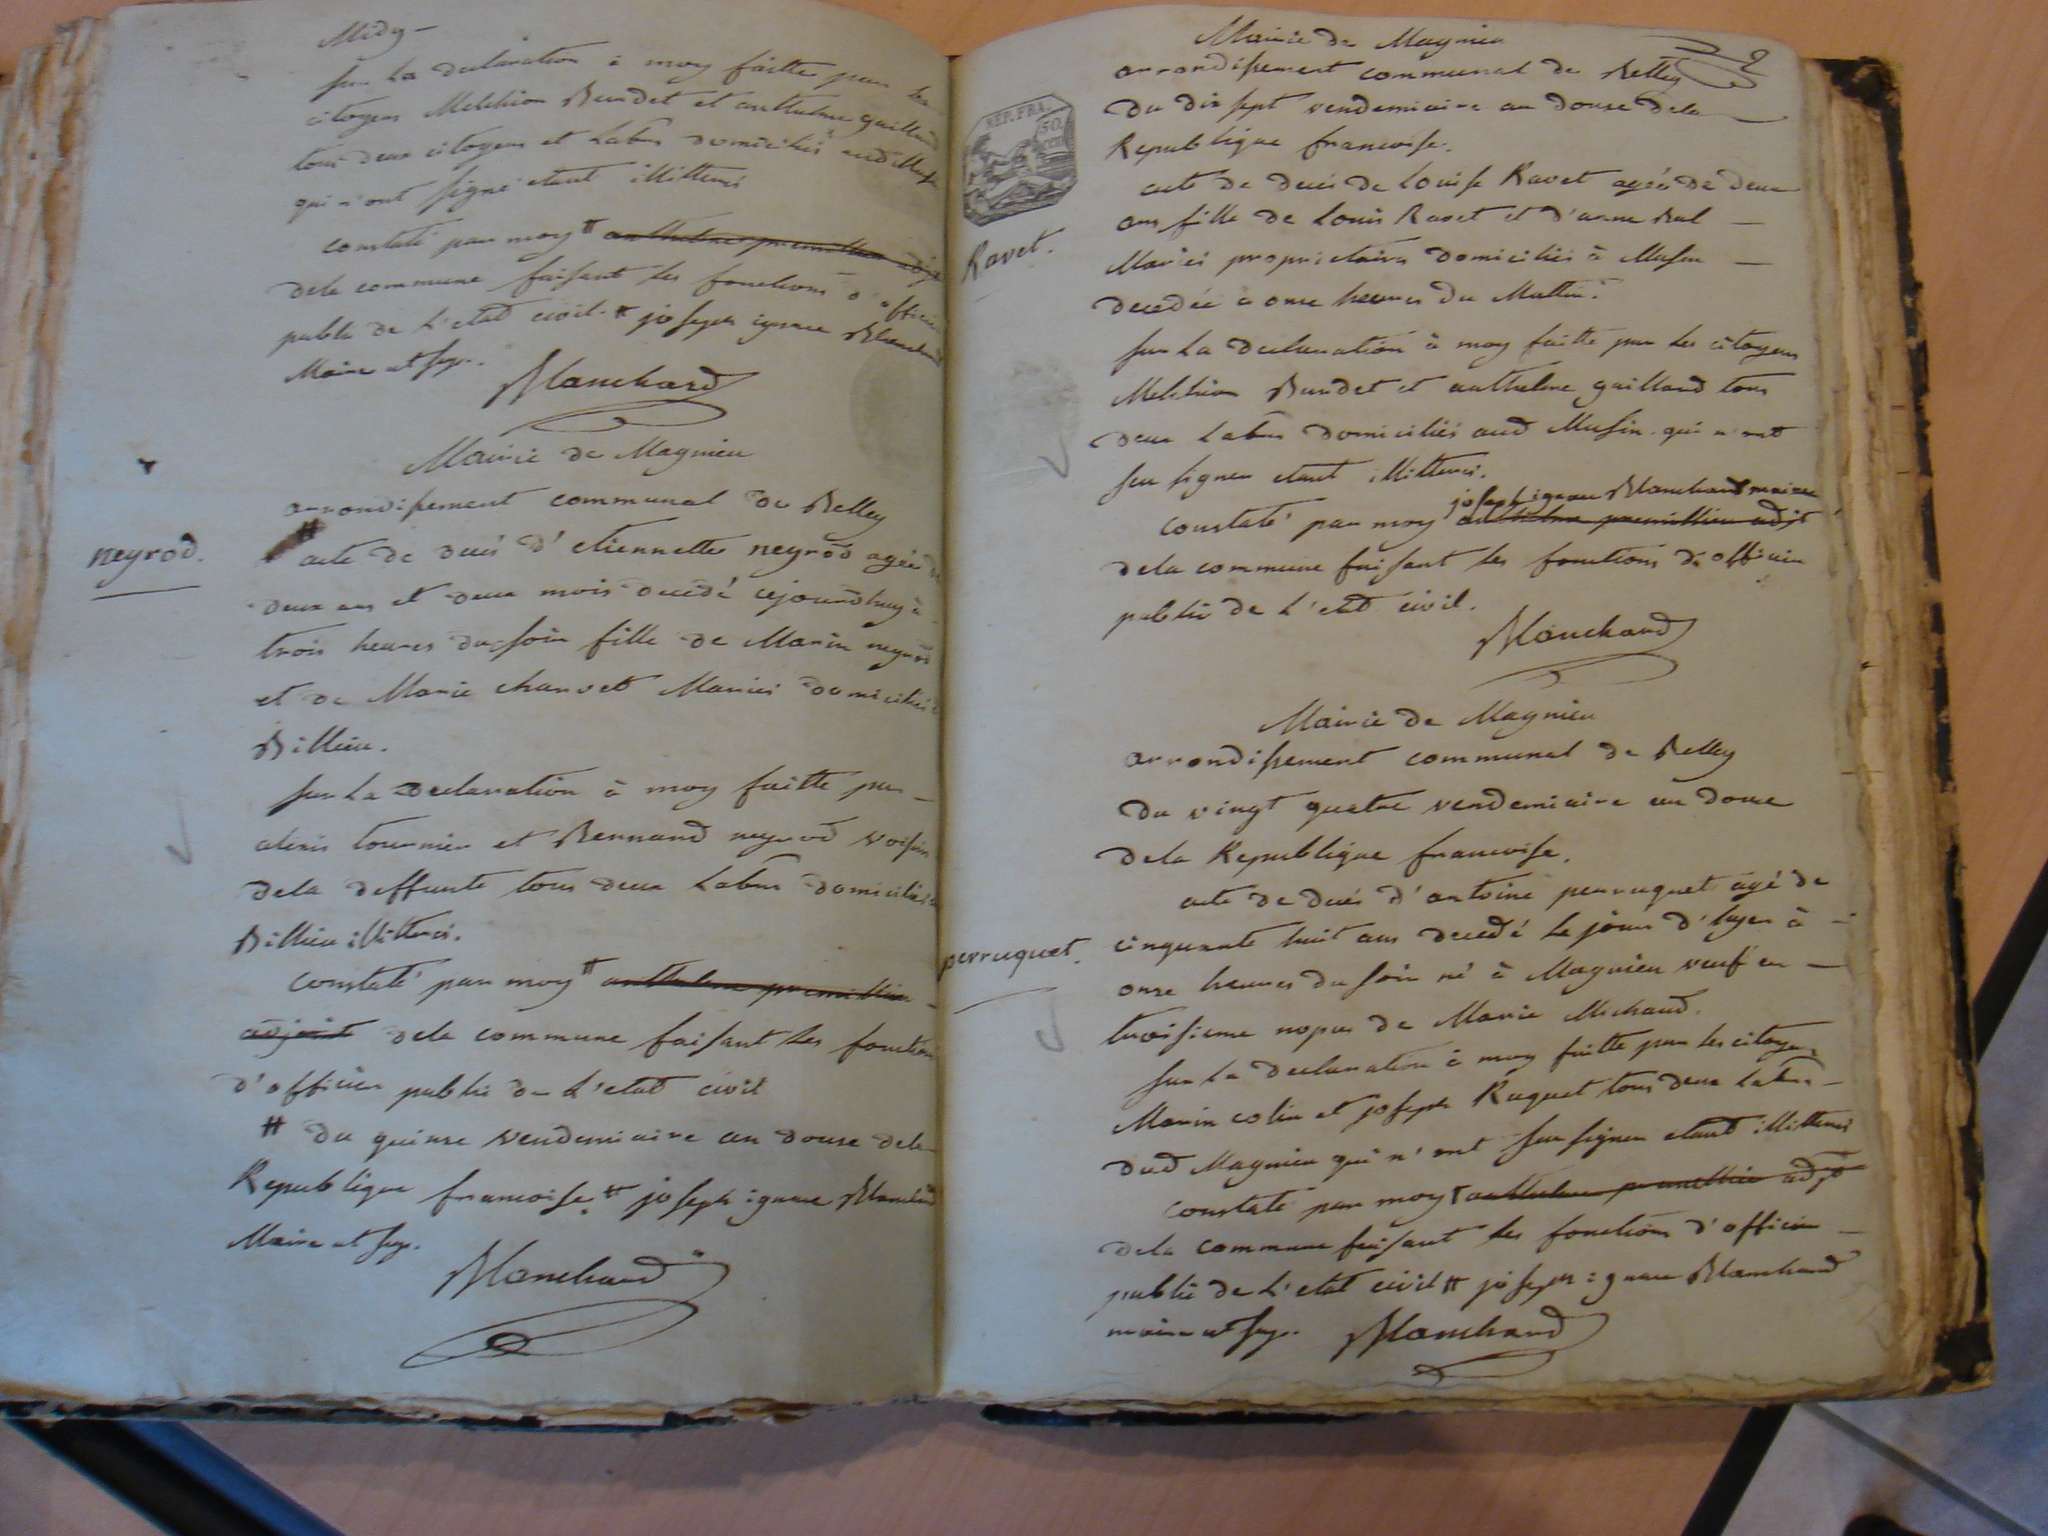 Midy -
sur la declaration à moy faitte par les
citoyens Melchior Bundet et anthelme gaillard
tous deux citoyens et Labrs domiciliés aud Musin
qui n'ont signé etant illitterés
constaté par moy # anthelme premillieu adjt
dela commune faisant les fonctions d'officier
public de L'etat civil. # joseph ignace Blanchard
Maire et sige.
Blanchard
Mairie de Magnieu
arrondissement communal de Belley
neyrod.
# acte de decés d'etiennette neyrod agée de
deux ans et deux mois decedé cejourdhuy à
trois heures du soir fille de Marin neyrod
et de Marie charvet Mariés domiciliés à
Billieu.
sur La declaration à moy faitte par
alexis tournier et Bernard neyrod voisins
dela deffunte tous deux Labrs domiciliés à
Billieu illitterés.
constaté par moy # anthelme premillieu
adjoint dela commune faisant les fonctions
d'officier public de L'etat civil
# du quinse vendemiaire an douse dela
Republique francoise. # joseph ignace Blanchard
Maire et sige.
Blanchard
2
Mairie de Magnieu
arrondissement communal de Belley
du dix sept vendemiaire an douse dela
Republique francoise.
REP. FRA.
50
CENT
Ravet.
acte de decés de Louise Ravet agée de deux
ans fille de Louis Ravet et d'anne Bal
Mariés proprietaires domiciliés à Musin
decedée à onse heures du Mattin.
sur La declaration à moy faitte par les citoyens
Melchior Bundet et anthelme gaillard tous
deux Labrs domiciliés aud Musin. qui n'ont
seu signer etant illitterés.
joseph ignace Blanchard maire
constaté par moy anthelme premillieu adjt
dela commune faisant les fonctions d'officier
public de L'etat civil.
Blanchard
Mairie de Magnieu
arrondissement communal de Belley
du vingt quatre vendemiaire an douse
dela Republique francoise.
perruquet.
acte de decés d'antoine perruquet agé de
cinquante huit ans decedé le jour d'hyer à
onse heures du soir né à Magnieu veuf en
troisieme nopces de Marie Michaud.
sur La declaration à moy faitte par les citoyens
Marin colin et joseph Ruquet tous deux Labrs
dud Magnieu qui n'ont seu signer etant illitterés
constaté par moy # anthelme premillieu adjt
dela commune faisant les fonctions d'officier
public de L'etat civil # joseph ignace Blanchard
maire et sige. Blanchard